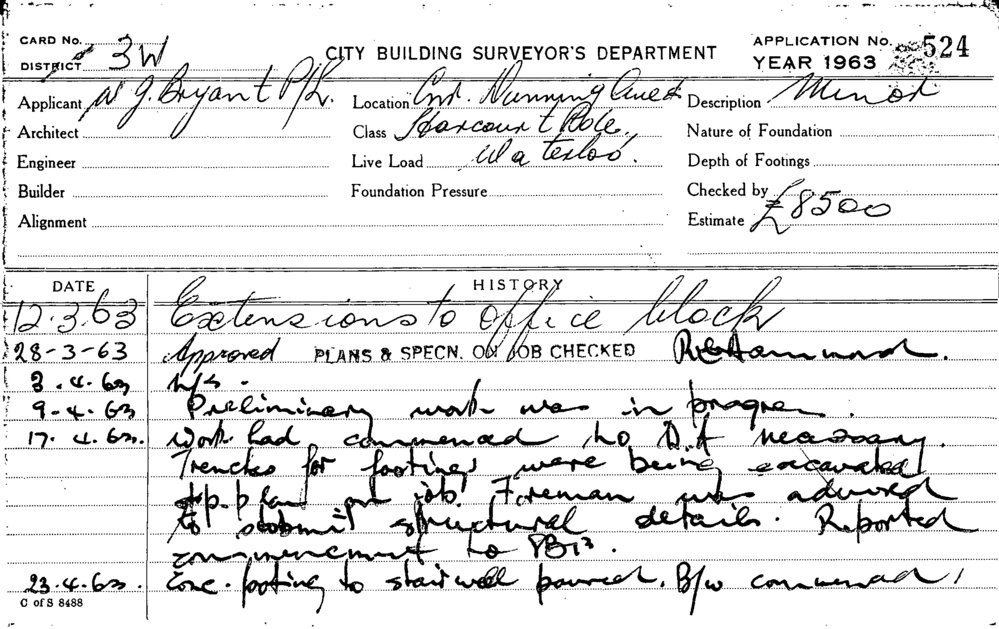 CARD No.
DISTRICT 3W
CITY BUILDING SURVEYOR'S DEPARTMENT
APPLICATION No. 524
YEAR 1963
Applicant W J. Bryant P/L.
Location Cnr. Dunning Ave &
Description Minor
Architect
Class Harcourt Pde.
Nature of Foundation
Engineer
Live Load Waterloo.
Depth of Footings
Builder
Foundation Pressure
Checked by
Alignment
Estimate £8500
DATE
HISTORY
12.3.63 Extensions to office block
28-3-63 Approved PLANS & SPECN. ON JOB CHECKED
3.4.63 N/S.
9-4.63 Preliminary work was in progress.
17.4.63. Work had commenced no D.A necessary.
Trenches for footings were being excavated
App. plan on job Foreman was advised
to submit structural details. Reported
commencement to
23.4.63. Conc. footing to stairwell poured. B/w commenced.
C of S 8488